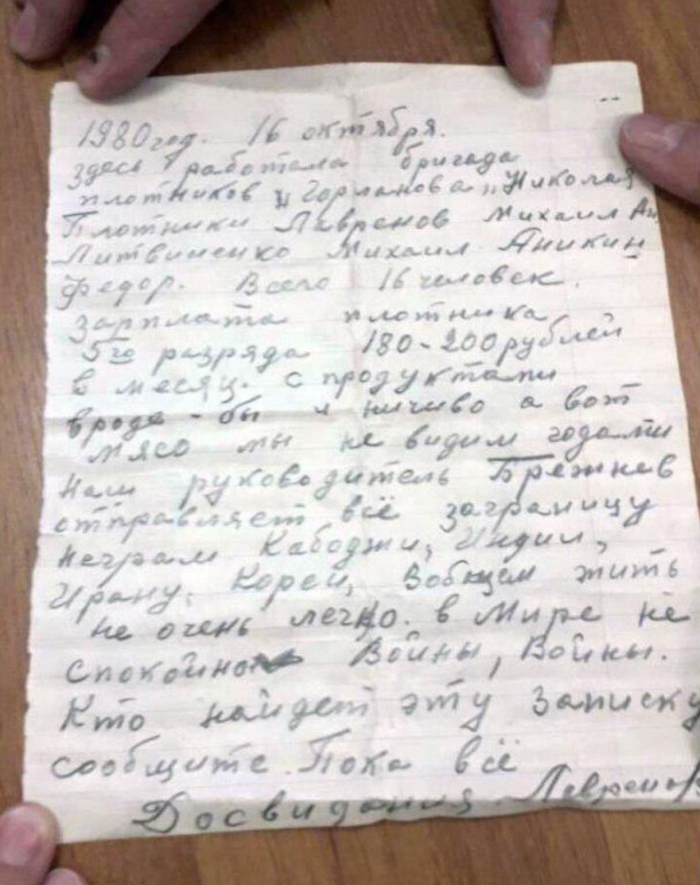 1980 год. 16 октября.
здесь работала бригада
плотников "Горланова" Николая
Плотники Лавренов Михаил Ан.
Литвиненко Михаил. Аникин
Федор. Всего 16 человек.
Зарплата плотника
5го разряда 180-200 рублей
в месяц. с продуктами
вроде-бы и ничиво а вот
мясо мы не видим годами
Наш руководитель Брежнев
отправляет всё заграницу
неграм Кабоджи, Индии,
Ирану, Кореи, Вобщем жить
не очень легко. в Мире не
спокойно Войны, Войны.
Кто найдет эту записку
сообщите. Пока всё
Досвидания. Лавренов